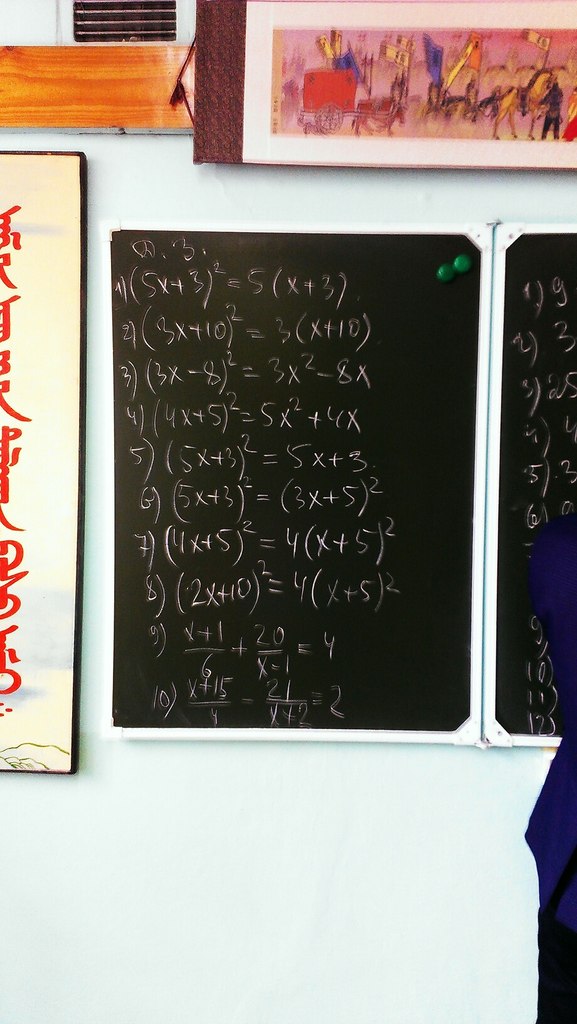 Д. З.
1) (5x+3)² = 5(x+3)
2) (3x+10)² = 3(x+10)
3) (3x-8)² = 3x²-8x
4) (4x+5)² = 5x²+4x
5) (5x+3)² = 5x+3.
6) (5x+3)² = (3x+5)²
7) (4x+5)² = 4(x+5)²
8) (2x+10)² = 4(x+5)²
9) x+1/6 + 20/x-1 = 4
10) x+15/4 - 21/x+2 = 2
1) 9
2) 3
3) 25
4) 4
5) 3
6)
9)
10)
11)
12)